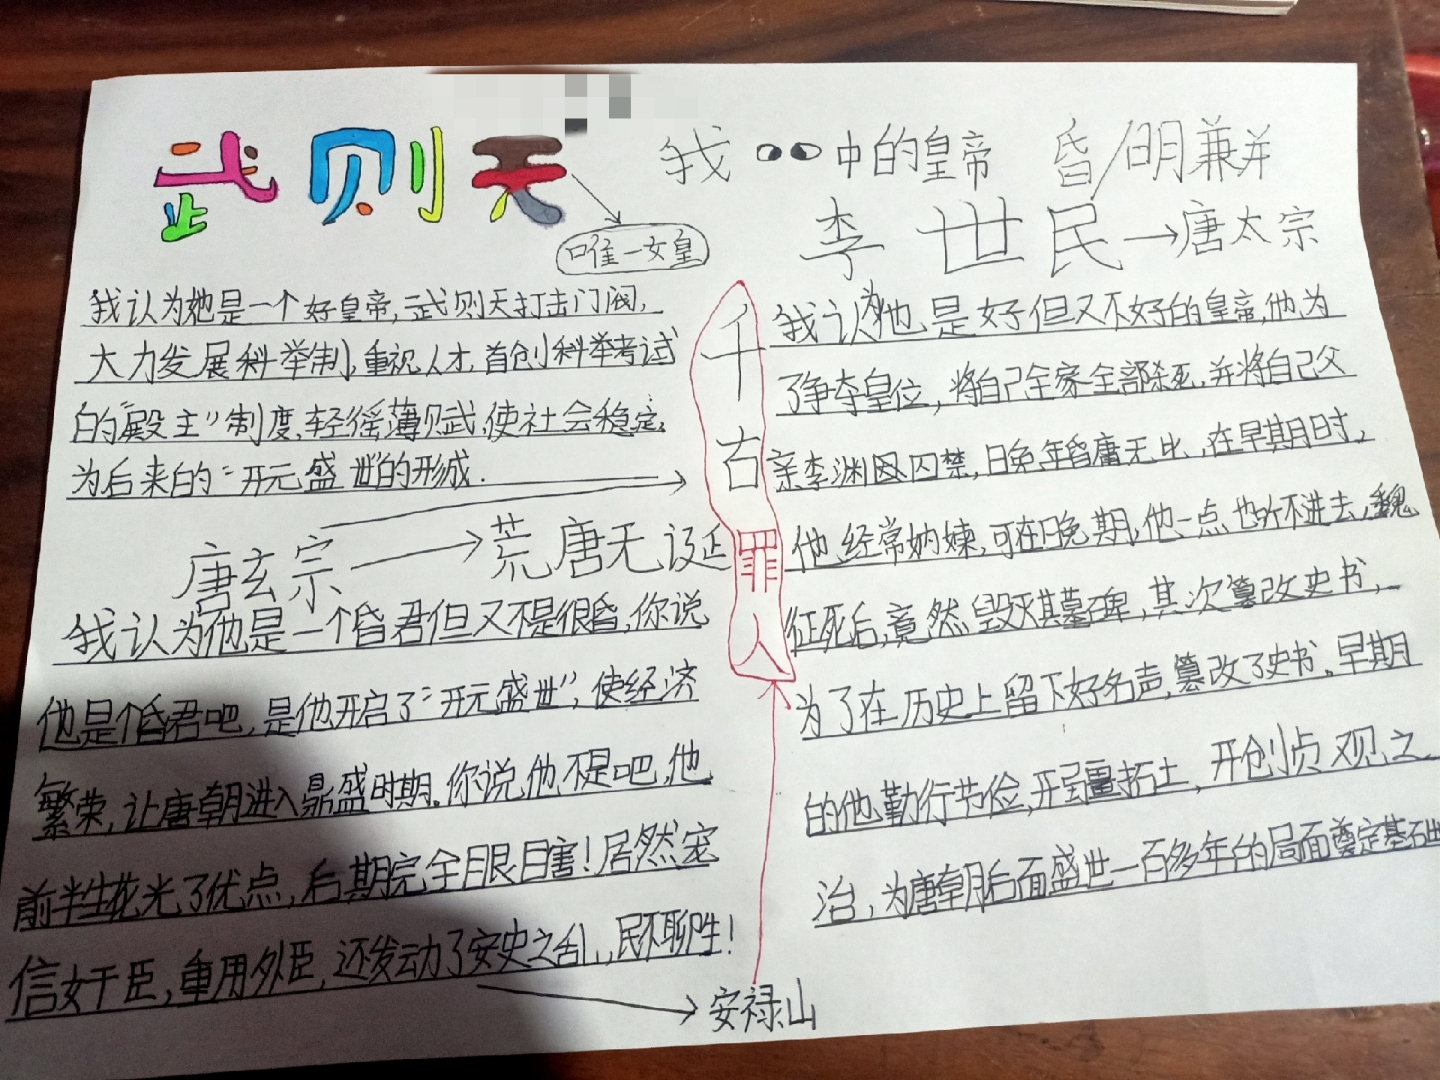 武则天
唯一女皇
我认为她是一个好皇帝,武则天打击门阀,
大力发展科举制,重视人才,首创科举考试
的"殿主"制度,轻徭薄赋,使社会稳定,
为后来的"开元盛世"的形成.
唐玄宗→荒唐无诞
我认为他是一个昏君但又不是很昏,你说
他是个昏君吧,是他开启了"开元盛世",使经济
繁荣,让唐朝进入鼎盛时期。你说他不是吧,他
前半生花光了优点,后期完全眼害!居然宠
信奸臣,重用外臣,还发动了安史之乱,民不聊生!
安禄山
千古罪人
我👀中的皇帝 昏/明兼并
李世民→唐太宗
我认为他是好但又不好的皇帝,他为
了争夺皇位,将自己全家全部杀死,并将自己父
亲李渊囚禁,晚年昏庸无比,在早期时,
他经常纳谏,可在晚期,他一点也听不进去,魏
征死后,竟然毁灭其墓碑,其次篡改史书,
为了在历史上留下好名声,篡改了史书。早期
的他勤行节俭,开疆拓土,开创贞观之
治,为唐朝后面盛世一百多年的局面奠定基础